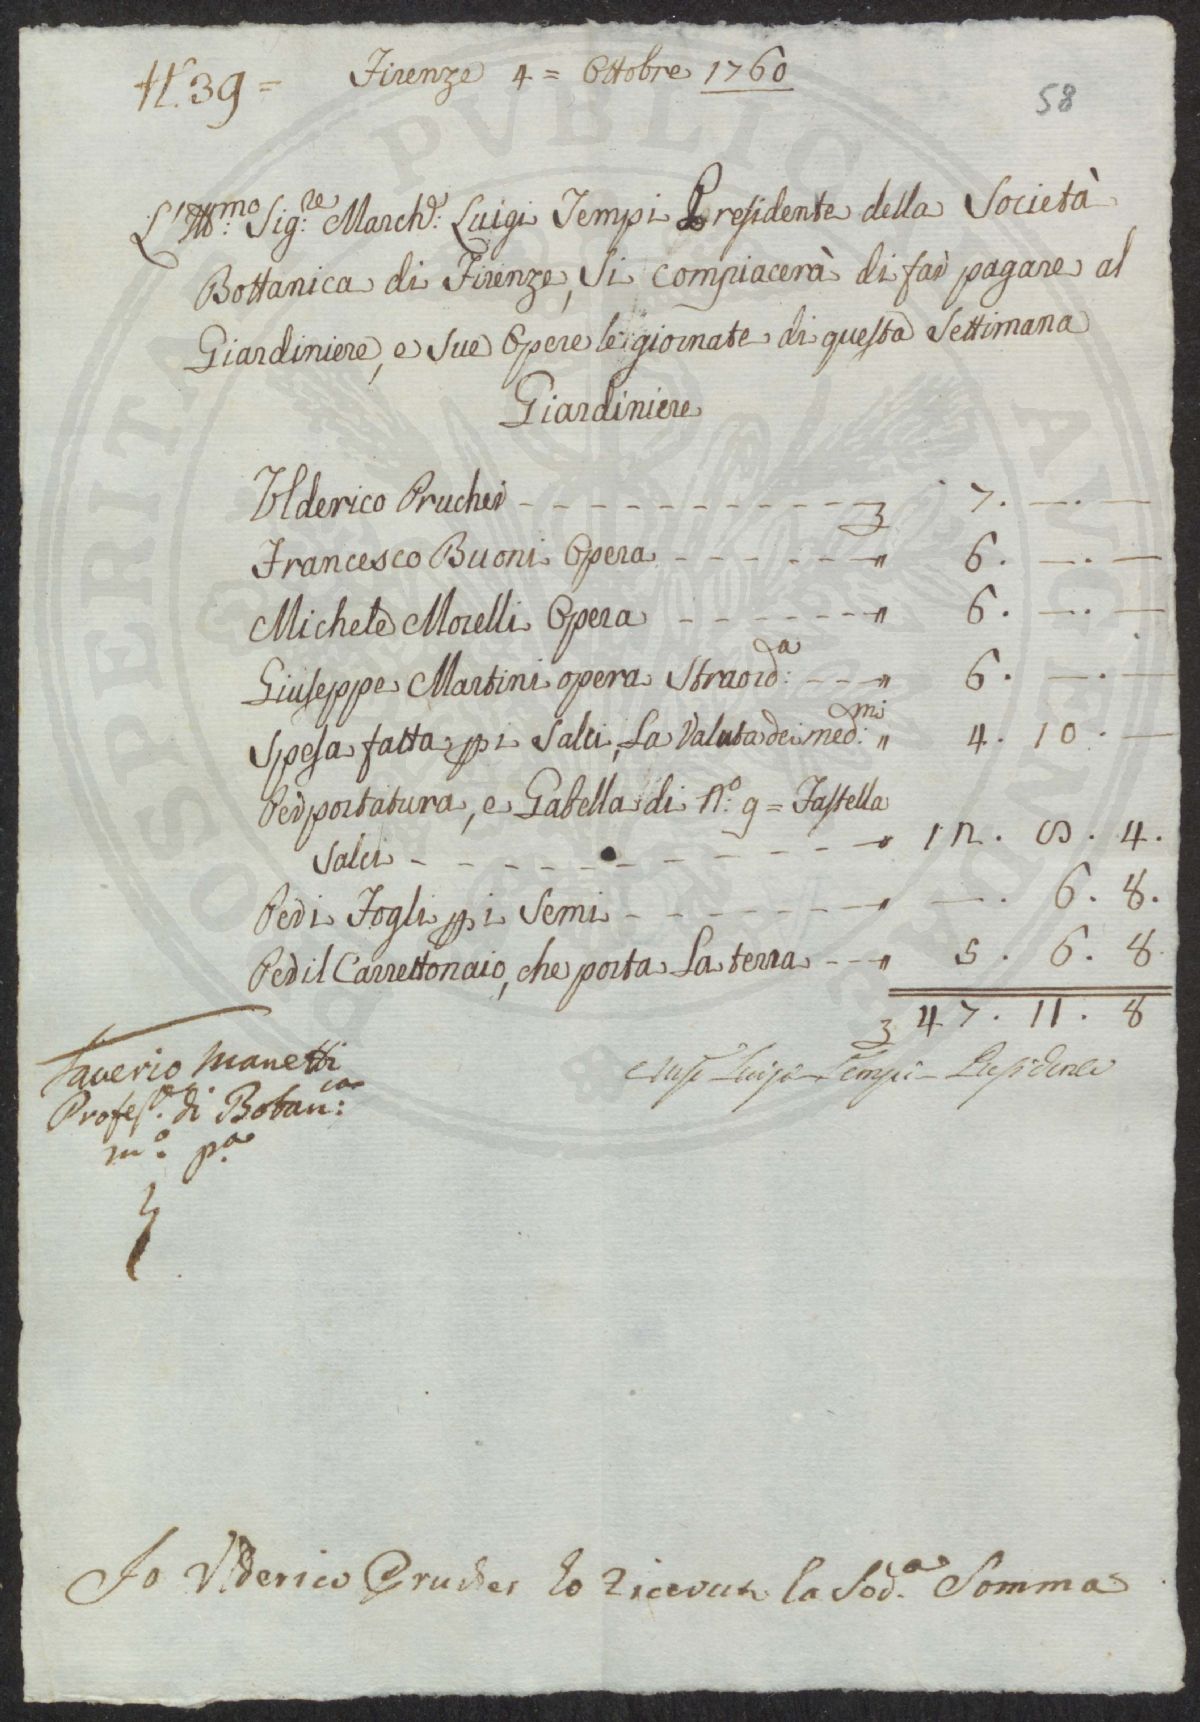 N.° 39 =
Firenze 4 = Ottobre 1760
58
L'Ill:mo Sig:re March:e Luigi Tempi Presidente della Società
Bottanica di Firenze, si compiacerà di far pagare al
Giardiniere, e sue Opere le giornate di questa Settimana
Giardiniere
Ulderico Prucher - - - - - - - - - - - £ 7. —. —
Francesco Buoni Opera - - - - - - " 6. —. —
Michele Morelli Opera - - - - - - " 6. —. —
Giuseppe Martini opera Straord:a - - - " 6. —. —
Spesa fatta p i Salci, La Valuta dei med:mi " 4. 10. —
Per portatura, e Gabella di N.° 9 = Fastella
Salci - - - - - - - - - - - - " 12. 8. 4.
Per i Fogli p i Semi - - - - - - - " —. 6. 8.
Per il Carrettonaio, che porta La terra - - - " 5. 6. 8
£ 47. 11. 8
Saverio Manetti
Profes:e di Botan:ca
m:o p:a
Luigi Tempi Presidente
Io Ulderico Prucher ho riceuto la Sod.a Somma
PROSPERITATI PVBLICAE AVGENDAE